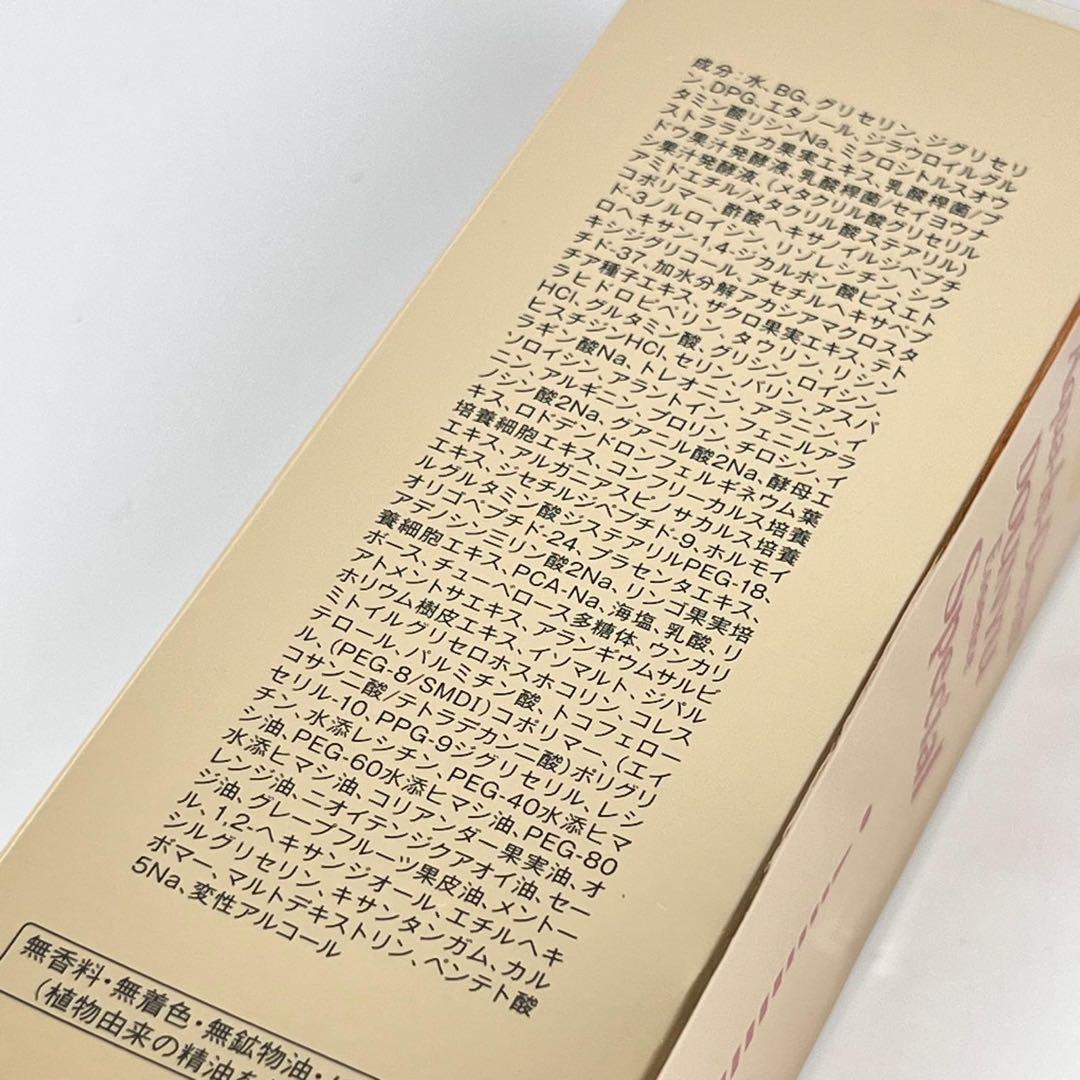 成分:水、BG、グリセリン、ジグリセリ
ン、DPG、エタノール、ジラウロイルグル
タミン酸リシンNa、ミクロシトルスオウ
ストララシカ果実エキス、乳酸桿菌/ブ
ドウ果汁発酵液、乳酸桿菌/セイヨウナ
シ果汁発酵液、(メタクリル酸グリセリル
アミドエチル/メタクリル酸ステアリル)
コポリマー、酢酸ヘキサノイルジペプチ
ド-3ノルロイシン、リゾレシチン、シク
ロヘキサン1,4-ジカルボン酸ビスエト
キシジグリコール、アセチルヘキサペプ
チド-37、加水分解アカシアマクロスタ
チア種子エキス、ザクロ果実エキス、テト
ラヒドロピペリン、タウリン、リシン
HCl、グルタミン酸、グリシン、ロイシン、
ヒスチジンHCl、セリン、バリン、アスパ
ラギン酸Na、トレオニン、アラニン、イ
ソロイシン、アラントイン、フェニルアラ
ニン、アルギニン、プロリン、チロシン、イ
ノシン酸2Na、グアニル酸2Na、酵母エ
キス、ロドデンドロンフェルギネウム葉
培養細胞エキス、コンフリーカルス培養
エキス、アルガニアスピノサカルス培養
エキス、ジセチルジペプチド-9、ホルモイ
ルグルタミン酸ジステアリルPEG-18、
オリゴペプチド-24、プラセンタエキス、
アデノシンミリン酸2Na、リンゴ果実培
養細胞エキス、PCA-Na、海塩、乳酸、リ
ボース、チューベロース多糖体、ウンカリ
アトメントサエキス、アランギウムサルビ
ホリウム樹皮エキス、イソマルト、ジパル
ミトイルグリセロホスホコリン、コレス
テロール、パルミチン酸、トコフェロー
ル、(PEG-8/SMDI)コポリマー、(エイ
コサン二酸/テトラデカン二酸)ポリグリ
セリル-10、PPG-9ジグリセリル、レシ
チン、水添レシチン、PEG-40水添ヒマ
シ油、PEG-60水添ヒマシ油、PEG-80
水添ヒマシ油、コリアンダー果実油、オ
レンジ油、ニオイテンジクアオイ油、セー
ジ油、グレープフルーツ果皮油、メントー
ル、1,2-ヘキサンジオール、エチルヘキ
シルグリセリン、キサンタンガム、カル
ボマー、マルトデキストリン、ペンテト酸
5Na、変性アルコール
無香料・無着色・無鉱物油・
(植物由来の精油を
Special